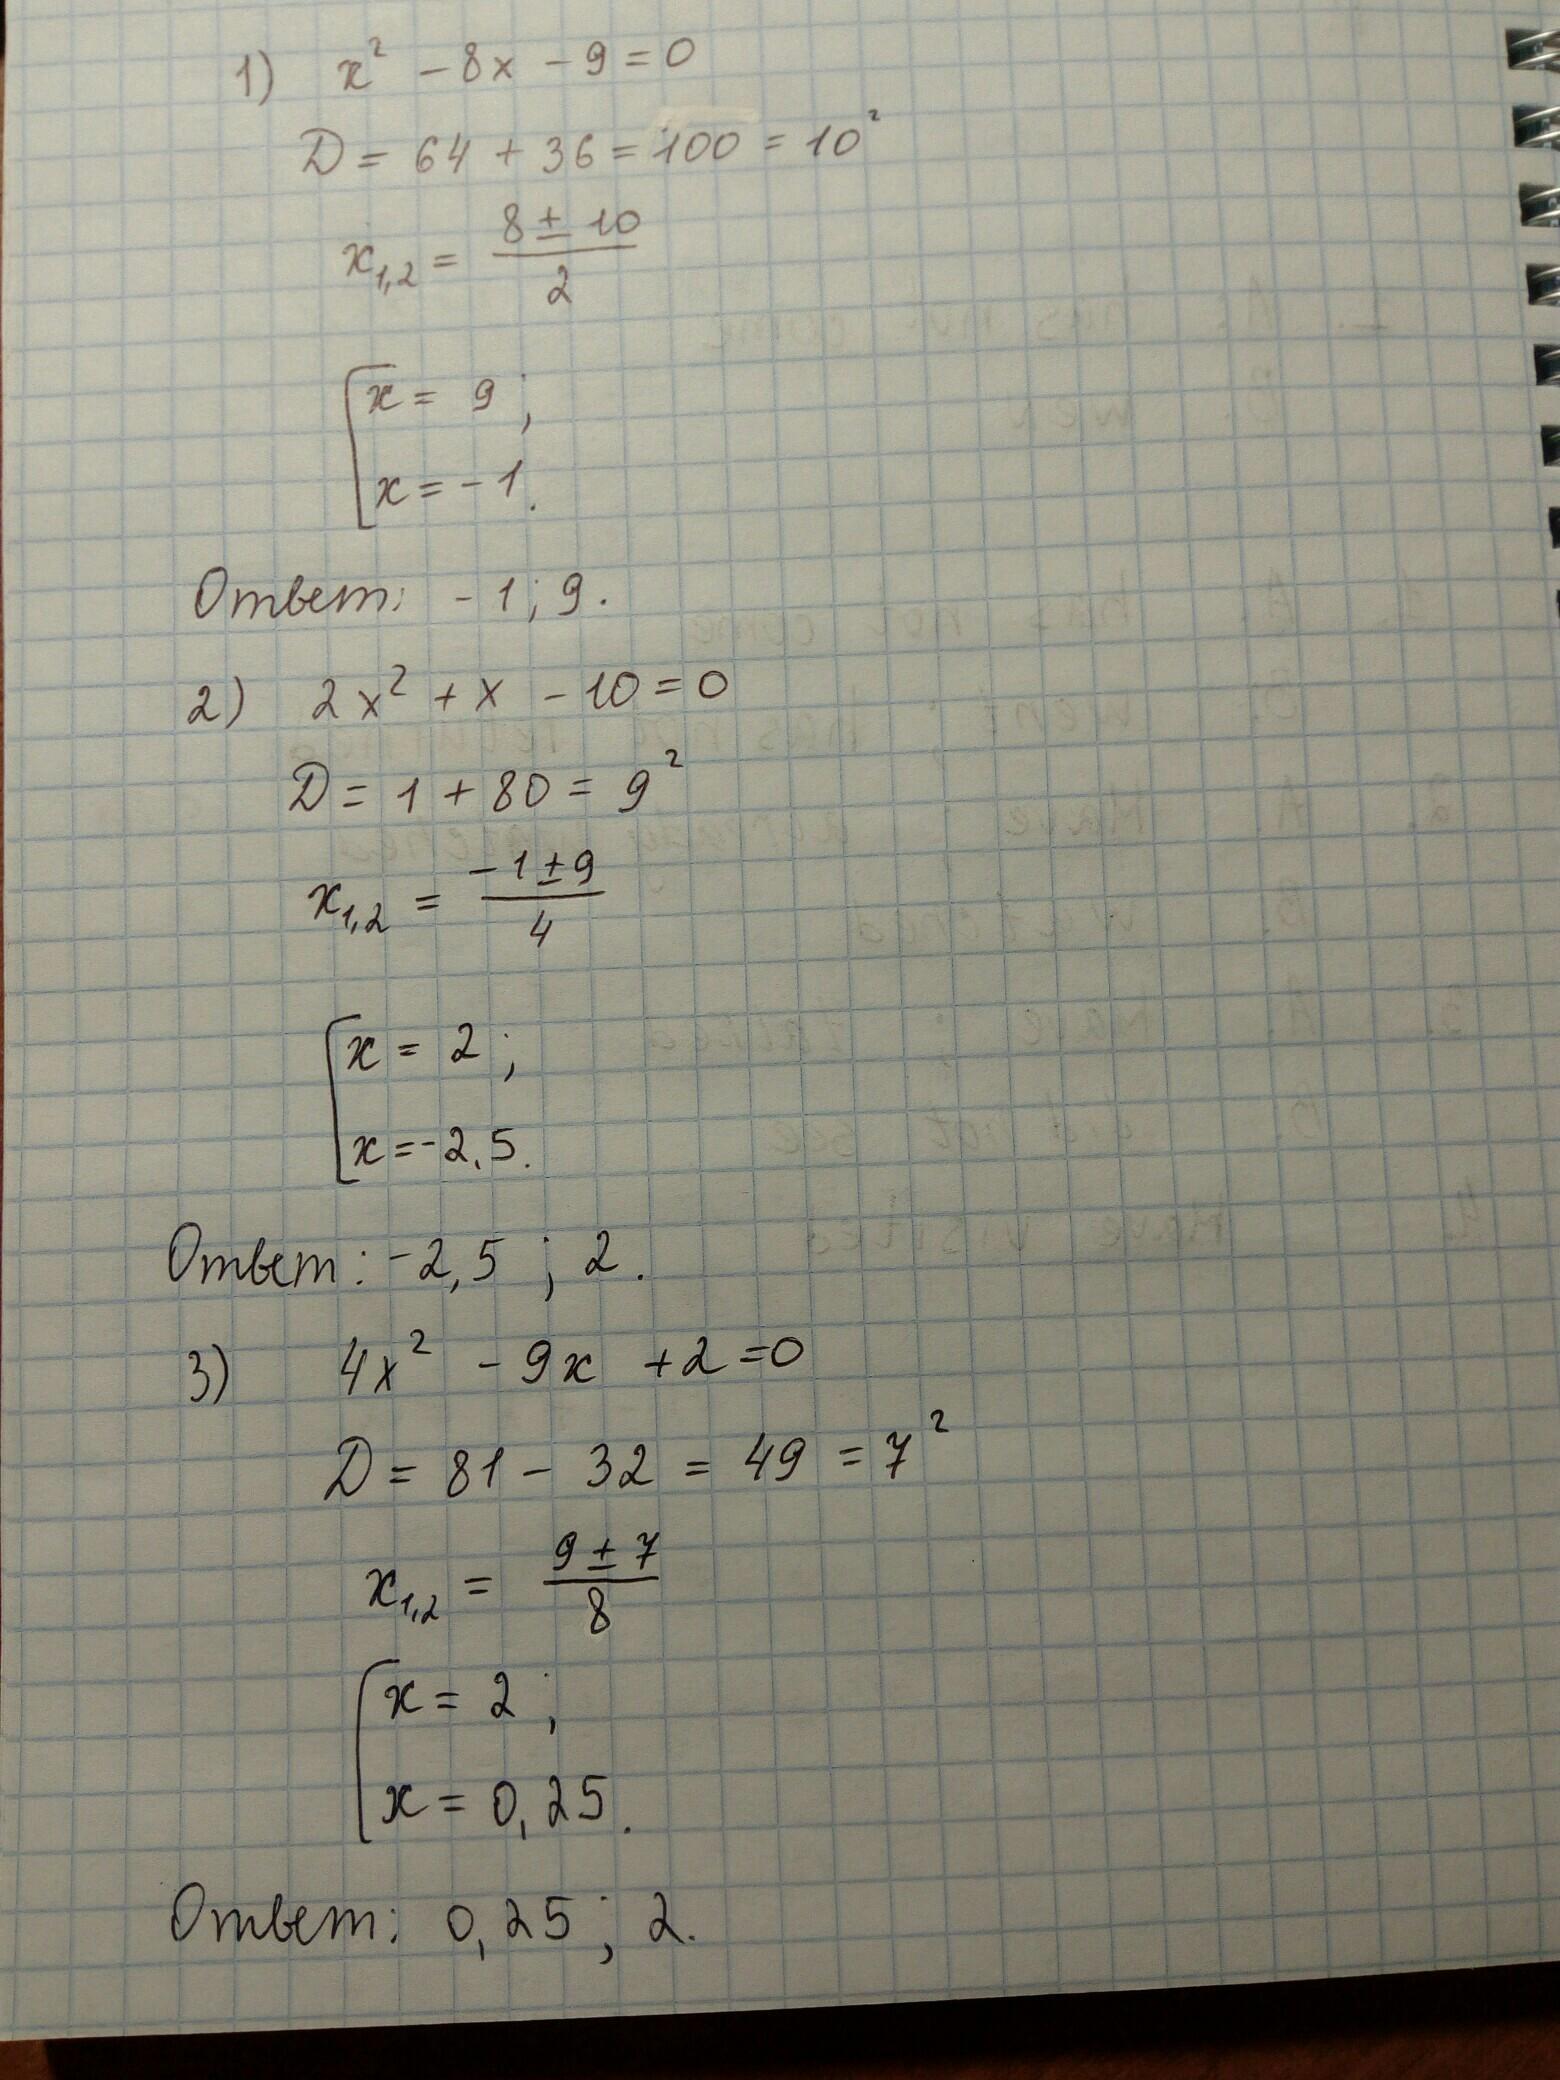 1) x² - 8x - 9 = 0
D = 64 + 36 = 100 = 10²
x₁,₂ = (8 ± 10)/2
[ x = 9;
x = -1.
Ответ: -1; 9.
2) 2x² + x - 10 = 0
D = 1 + 80 = 9²
x₁,₂ = (-1 ± 9)/4
[ x = 2;
x = -2,5.
Ответ: -2,5; 2.
3) 4x² - 9x + 2 = 0
D = 81 - 32 = 49 = 7²
x₁,₂ = (9 ± 7)/8
[ x = 2;
x = 0,25.
Ответ: 0,25; 2.